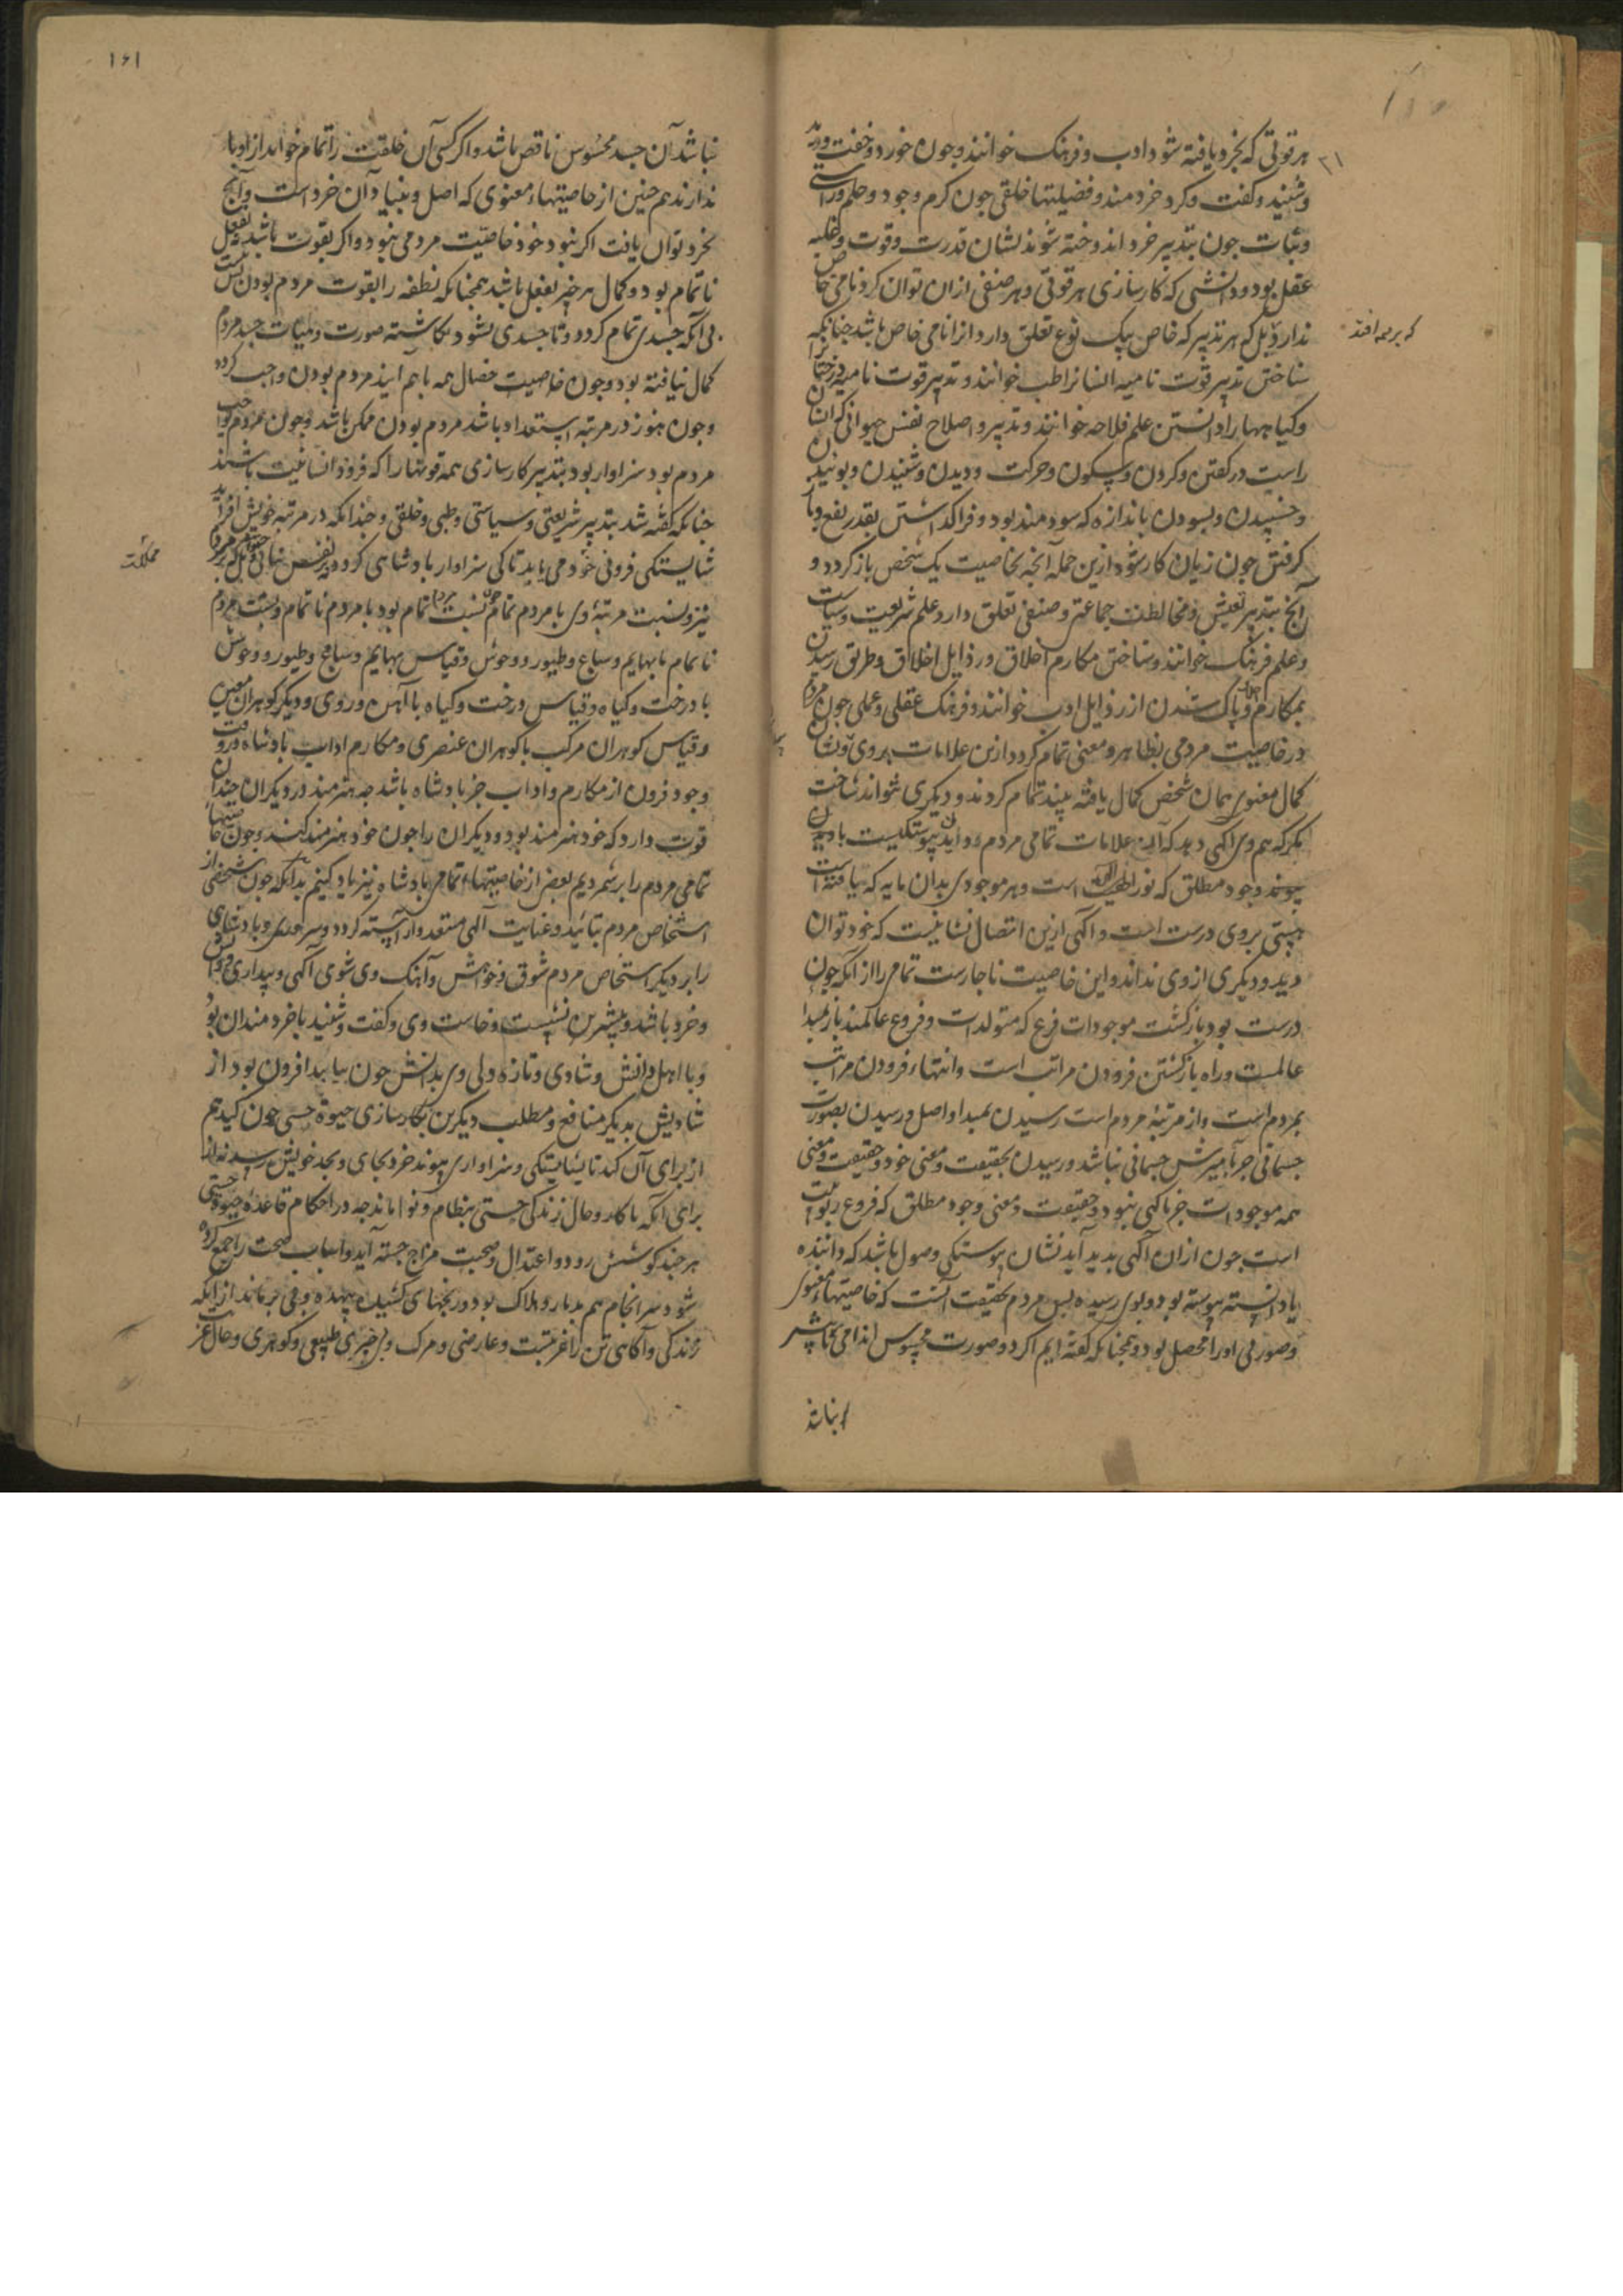 هر قوتی که بخرد یافته شود ادب و فرهنک خوانند و جون خورد و خفت و دید
و شنید و کفت و کرد خردمند و فضیلتها خلقی جون کرم و جود و حلم و راستی
و ثبات جون بتدبیر خرد اندوخته شوند نشان قدرت و قوت و غلبه
عقل بود و دانشی که کارسازی هر قوتی و هر صنفی ازان توان کرد نامی خاص
ندارد بل که هر تدبیر که خاص بیک نوع تعلق دارد انرا نامی خاص باشد جنانکه
که بر همه افتد
شناختن تدبیر قوت نامیه انسانرا طب خوانند و تدبیر قوت نامیه درختانرا
و کیاهها را دانستن علم فلاحه خوانند و تدبیر و اصلاح نفس حیوانی که انسان
راست در کفتن و کردن و سکون و حرکت و دیدن و شنیدن و بوئیدن
و جشیدن و بسودن باندازه که سودمند بود و فرا کذاشتن بقدر نفع و باز
کرفتن جون زیان کار شود ازین جمله آنجه بخاصیت یک شخص باز کردد و
آنج بتدبیر تعیش و مخالطت جماعتی و صنفی تعلق دارد علم شریعت و سیاست
و علم فرهنک خوانند و شناختن مکارم اخلاق و رذایل اخلاق و طریق رسیدن
بمکارم و پاک شدن از رذایل ادب خوانند و فرهنک عقلی و عملی جون مردم
در خاصیت مردمی بظاهر و معنی تمام کردد ازین علامات بروی و نشان
کمال معنوی همان شخص کمال یافته بیند تمام کردند و دیکری نتواند شناخت
مکر که هم وی آکهی دهد که این علامات تمامی مردم و و این پیوستکیست با دیدن
پیوند وجود مطلق که نور الهیت است و هر موجودی بدان مایه که یافته است
هستی بروی درست است و آکهی ازین اتصال نشانیست که خود توان
دید و دیکری از وی نداند و این خاصیت ناجارست تمام را از آنکه جون
درست بود بازکشت موجودات فرع که متولدات و فروع عالمند باز مبدا
عالمست و راه بازکشتن فرودن مراتب است و انتهاء فرودن مراتب
بمردم است و از مرتبهٔ مردم است رسیدن بمبدا و اصل و رسیدن بصورت
جسمانی جز بآمیزش جسمانی نباشد و رسیدن بحقیقت و معنی خود و حقیقت و معنی
همه موجودات جز بآکهی نبود و حقیقت و معنی وجود مطلق که فروع ربوبیت
است جون ازان آکهی پدید آید نشان پیوستکی و وصول باشد که داننده
با دانسته پیوسته بود و بوی رسیده پس مردم بحقیقت آنست که خاصیتهاء معنوی
و صورتی او را محصل بود و همجنانکه کفته ایم اکر در صورت محسوس اندامی
نباشد
۱۶۱
نباشد آن جسد محسوس ناقص باشد و اکر کسی آن خلقت را تمام خواند از او باور
ندارند هم جنین از خاصیتهاء معنوی که اصل و بنیاد آن خرد است و آنج
بخرد توان یافت اکر نبود خود خاصیت مردمی نبود و اکر بقوت باشد بفعل
ناتمام بود و کمال هر جیز بفعل باشد همجنانکه نطفه را بقوت مردم بودن نیست
بی آنکه جسدی تمام کردد و تا جسدی نشود نکاشته صورت و هیئات جسد مردم
کمال نیافته بود و جون خاصیت خصال همه باهم آیند مردم بودن واجب کردد
و جون هنوز در مرتبه استعداد باشد مردم بودن ممکن باشد و جون مردم واجب
مردم بود سزاوار بود بتدبیر کارسازی همه قوتها را که فرود انسانیت باشند
جنانکه کفته شد بتدبیر شریعتی و سیاستی و طبی و خلقی و جندانکه در مرتبه خویش افزاید
شایستکی فزونی خود می یابد تا کی سزاوار بادشاهی کردد
مملکت
نیز و نسبت مرتبهٔ وی با مردم تمام جون نسبت مردم تمام بود با مردم ناتمام و نسبت مردم
ناتمام با بهایم و سباع و طیور و وحوش و قیاس بهایم و سباع و طیور و وحوش
با درخت و کیاه و قیاس درخت و کیاه با آهن و روی و دیکر کوهران معدنی
و قیاس کوهران مرکب با کوهران عنصری و مکارم اداب بادشاه در وقت
وجود فزون از مکارم و اداب جز بادشاه باشد جه هنرمند در دیکران جندان
قوت دارد که خود هنرمند بود و دیکران را جون خود هنرمند کند و جون خاصیتهاء
تمامی مردم را برشمردیم بعضی از خاصیتهاء تمامی بادشاه نیز یاد کنیم بدانکه جون شخصی از
اشخاص مردم بتائید و عنایت الهی مستعد و آراسته کردد و سروری و بادشاهی
را بر دیکر اشخاص مردم شوق و خواهش و آهنک وی سوی آکهی و بیداری و دانش
و خرد باشد و بیشترین نشست و خاست وی و کفت و شنید با خردمندان بود
و با اهل دانش و شادی و تازه دلی وی بدانش جون بیابد افزون بود از
شادیش بدیکر منافع و مطلب دیکرین بکارسازی حیوة حسی جون کند هم
از برای آن کند تا بشایستکی و سزاواری پیوند خرد بجای و بحد خویش رسد نه از
برای آنکه با کار و حال زندکی حسی بنظام و نوا ماند جه در احکام قاعدهٔ حیوة حسی
هر جند کوشش رود و اعتدال و صحبت مزاج جسته آید و اسباب صحت را جمع کرده
شود سرانجام هم بدمار و هلاک بود و رنجهای کشیده بیهده و بی بر ماند از آنکه
زندکی و آکاهی تن را غریبست و عارضی و مرک و بی خبری طبیعی و کوهری و حال